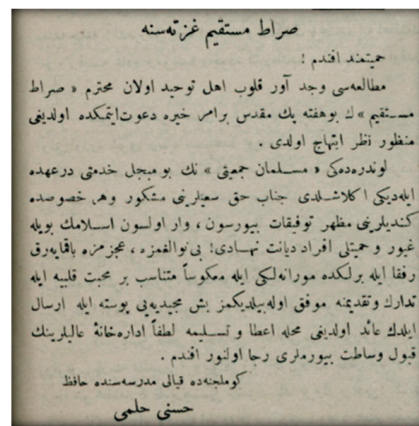 صراط مستقیم غزته‌سنه
حمیتمند افندم !
مطالعه‌سی وجد آور قلوب اهل توحید اولان محترم « صراط
مستقیم » ك بوهفته یك مقدس برامر خیره دعوت ایتمکده اولدیغی
منظور نظر ابتهاج اولدی .
لوندره‌ده‌کی « مسلمان جمعیتی » نك بو مبجل خدمتی درعهده
ایله‌دیکی اکلاشلدی جناب حق سعیلرینی مشکور وهر خصوصده
کندیلرینی مظهر توفیقات بیورسون ، وار اولسون اسلامك بویله
غیور و حمیتلی افراد دیانت نهادی ! بی نوالغمزه ، عجزمزه باقمایه‌رق
رفقا ایله برلکده مورانه‌لکی ایله معکوساً متناسب بر محبت قلبیه ایله
تدارك وتقدیمنه موفق اوله‌بیلدیکمز بش مجیدیه‌یی پوسته ایله ارسال
ایلدك عائد اولدیغی محله اعطا و تسلیمه لطفاً اداره‌خانهٔ عالیلرینك
قبول وساطت بیورملری رجا اولنور افندم .
کوملجنه‌ده قیالی مدرسه‌سنده حافظ
حسنی حلمی